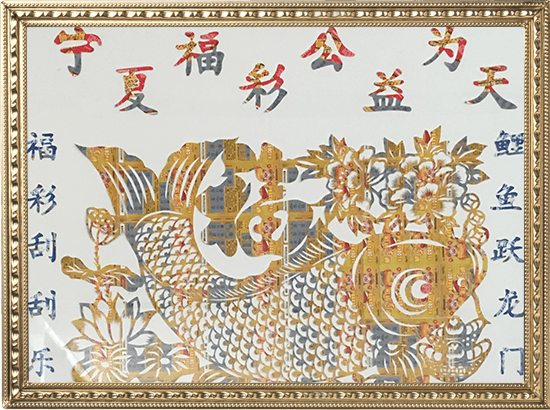 宁夏福彩公益为天
鲤鱼跃龙门
福彩刮刮乐